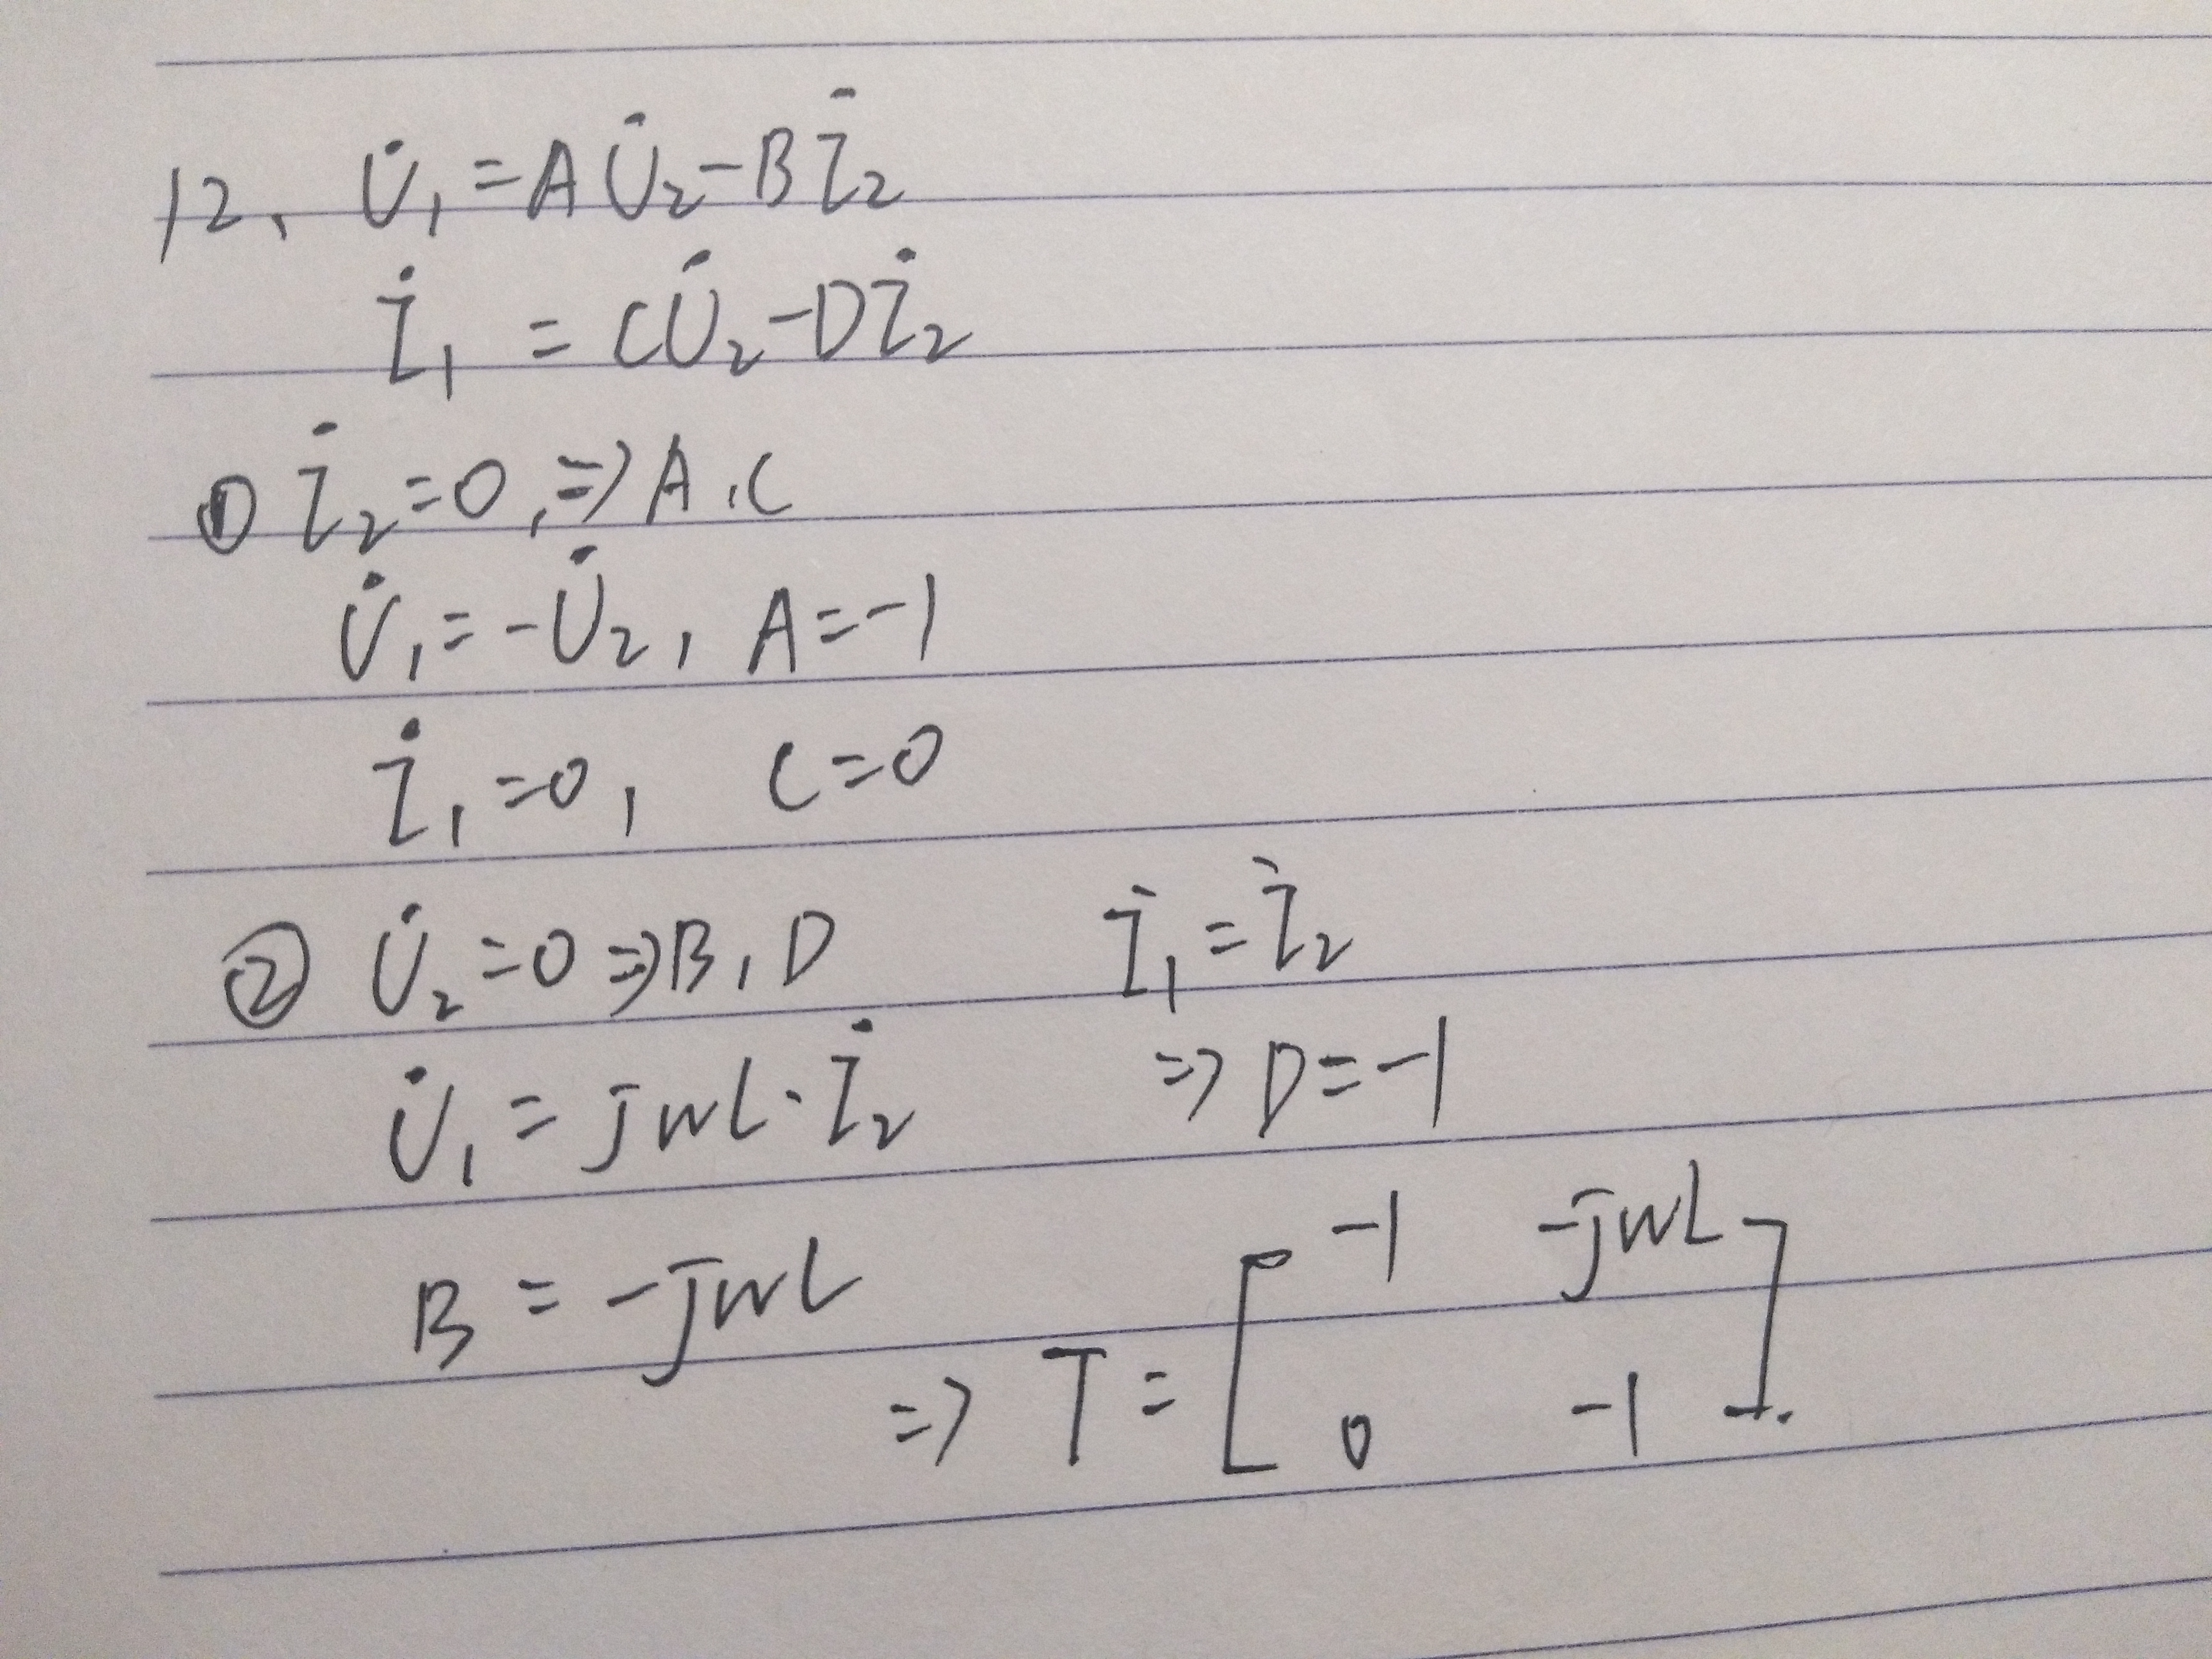 12、 U̇₁=AU̇₂-Bİ₂
İ₁=CU̇₂-Dİ₂
① İ₂=0,⇒A,C
U̇₁=-U̇₂, A=-1
İ₁=0, C=0
② U̇₂=0⇒B,D İ₁=İ₂
U̇₁=jwL·İ₂ ⇒D=-1
B=-jwL
⇒T=[-1 -jwL
0 -1].